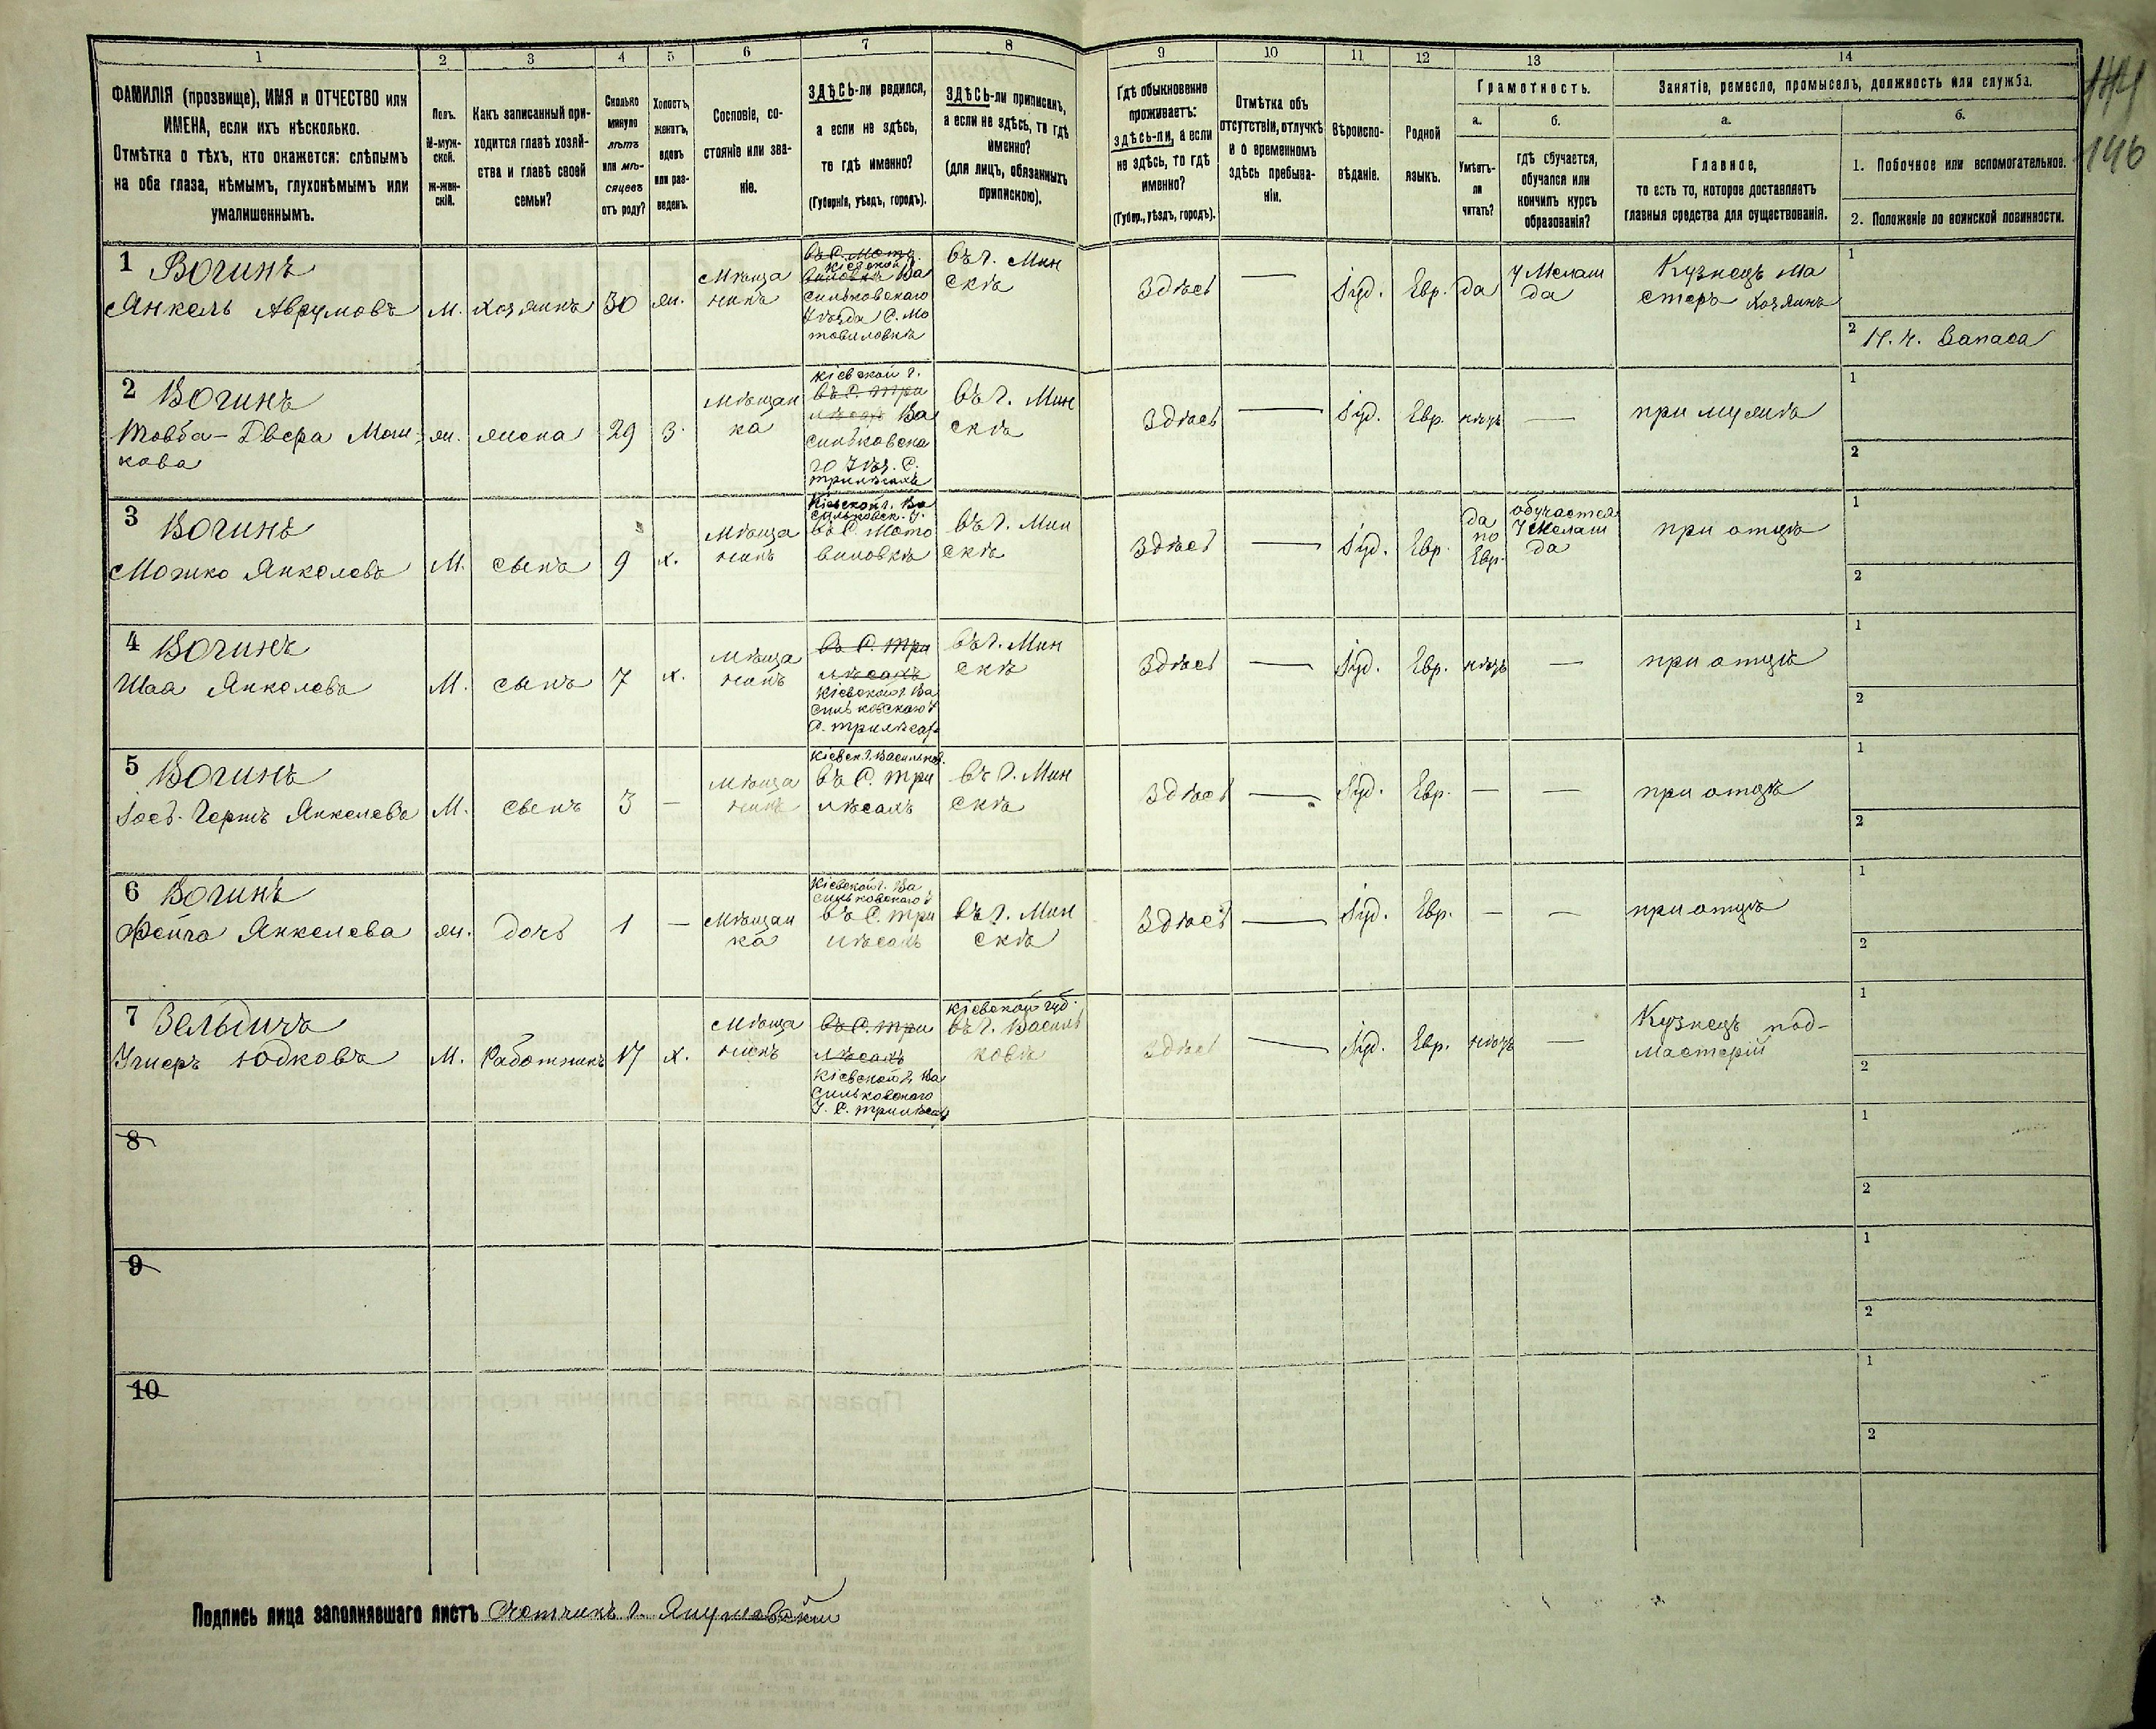 1
2
3
4
5
6
7
8
9
10
11
12
13
14
ФАМИЛІЯ (прозвище), ИМЯ и ОТЧЕСТВО или
ИМЕНА, если ихъ нѣсколько.
Отмѣтка о тѣхъ, кто окажется: слѣпымъ
на оба глаза, нѣмымъ, глухонѣмымъ или
умалишеннымъ.
Полъ.
М-муж-
ской.
ж-жен-
скій.
Какъ записанный при-
ходится главѣ хозяй-
ства и главѣ своей
семьи?
Сколько
минуло
лѣтъ
или мѣ-
сяцевъ
отъ роду?
Холостъ,
женатъ,
вдовъ
или раз-
веденъ.
Сословіе, со-
стояніе или зва-
ніе.
ЗДѢСЬ-ли родился,
а если не здѣсь,
то гдѣ именно?
(Губернія, уѣздъ, городъ).
ЗДѢСЬ-ли приписанъ,
а если не здѣсь, то гдѣ
именно?
(для лицъ, обязанныхъ
припискою).
Гдѣ обыкновенно
проживаетъ:
здѣсь-ли, а если
не здѣсь, то гдѣ
именно?
(Губер., уѣздъ, городъ).
Отмѣтка объ
отсутствіи, отлучкѣ
и о временномъ
здѣсь пребыва-
ніи.
Вѣроиспо-
вѣданіе.
Родной
языкъ.
Грамотность.
а.
Умѣетъ-
ли
читать?
б.
гдѣ обучается,
обучался или
кончилъ курсъ
образованія?
Занятіе, ремесло, промыселъ, должность или служба.
а.
Главное,
то есть то, которое доставляетъ
главныя средства для существованія.
б.
1. Побочное или вспомогательное.
2. Положеніе по воинской повинности.
146
1 Вогинъ
Янкель Аврумовъ
М.
Хозяинъ
30
жн.
Мѣща
нинъ
въ С. Мото
Кіевской г.
виловкѣ Ва
сильковскаго
Уѣзда С. Мо
товиловкѣ
въ г. Мин
скѣ
Здѣсь
—
Іуд.
Евр.
да
У Мелам
да
Кузнецъ ма
стеръ Хозяинъ
1
2 Н. ч. Запаса
2 Вогинъ
Товба-Двера Мош-
кова
жн.
жена
29
З.
Мѣщан
ка
Кіевской г.
въ С. Три
лѣсахъ Ва
сильковска
го Уѣз. С.
Трилѣсахъ
въ г. Мин
скѣ
Здѣсь
—
Іуд.
Евр.
нѣтъ
—
при мужѣ
1
2
3 Вогинъ
Мошко Янкелевъ
М.
сынъ
9
х.
Мѣща
нинъ
Кіевской г. Ва
сильковск. у.
въ С. Мото
виловкѣ
въ г. Мин
скѣ
Здѣсь
—
Іуд.
Евр.
да
по
Евр.
обучается
У Мелам
да
при отцѣ
1
2
4 Вогинъ
Шая Янкелевъ
М.
сынъ
7
х.
Мѣща
нинъ
въ С. Три
лѣсахъ
Кіевской г. Ва
сильковскаго у
С. Трилѣсахъ
въ г. Мин
скѣ
Здѣсь
—
Іуд.
Евр.
нѣтъ
—
при отцѣ
1
2
5 Вогинъ
Іось-Гершъ Янкелевъ
М.
сынъ
3
—
Мѣща
нинъ
Кіевск. г. Васильков.
въ С. Три
лѣсахъ
въ г. Мин
скѣ
Здѣсь
—
Іуд.
Евр.
—
—
при отцѣ
1
2
6 Вогинъ
Фейга Янкелева
жн.
дочь
1
—
Мѣщан
ка
Кіевской г. Ва
сильковскаго у
въ С. Три
лѣсахъ
въ г. Мин
скѣ
Здѣсь
—
Іуд.
Евр.
—
—
при отцѣ
1
2
7 Зельдичъ
Юдковъ
М.
Работникъ
17
х.
Мѣща
нинъ
въ С. Три
лѣсахъ
Кіевской г. Ва
сильковскаго
У. С. Трилѣсахъ
Кіевской губ.
въ г. Василь
ковѣ
Здѣсь
—
Іуд.
Евр.
нѣтъ
—
Кузнецъ под-
мастерій
1
2
8
1
2
9
1
2
10
1
2
Подпись лица заполнявшаго листъ Счетчикъ г.